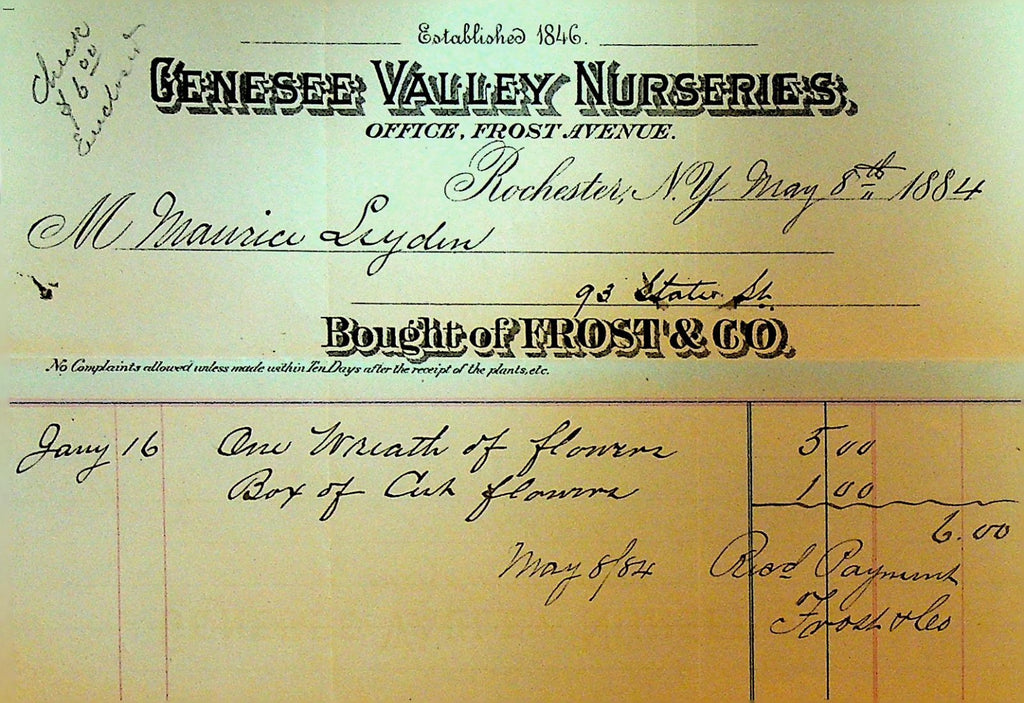 Check
$6.00
Enclosed
Established 1846.
GENESEE VALLEY NURSERIES,
OFFICE, FROST AVENUE.
Rochester, N.Y. May 8th 1884
M Maurice Leyden
93 State St.
Bought of FROST & CO.
No Complaints allowed unless made within Ten Days after the receipt of the plants, etc.
Jany 16 One Wreath of flowers 5 00
Box of Cut flowers 1 00
6.00
May 8/84 Recd Payment
Frost & Co